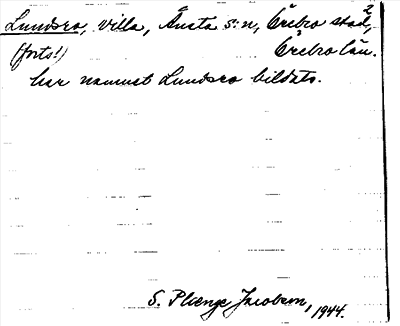 Lundsro, villa, Ånsta s:n, Örebro stad, 2
(forts!) Örebro län.
har namnet Lundsro bildats.
S. Plenge Jacobson, 1944.